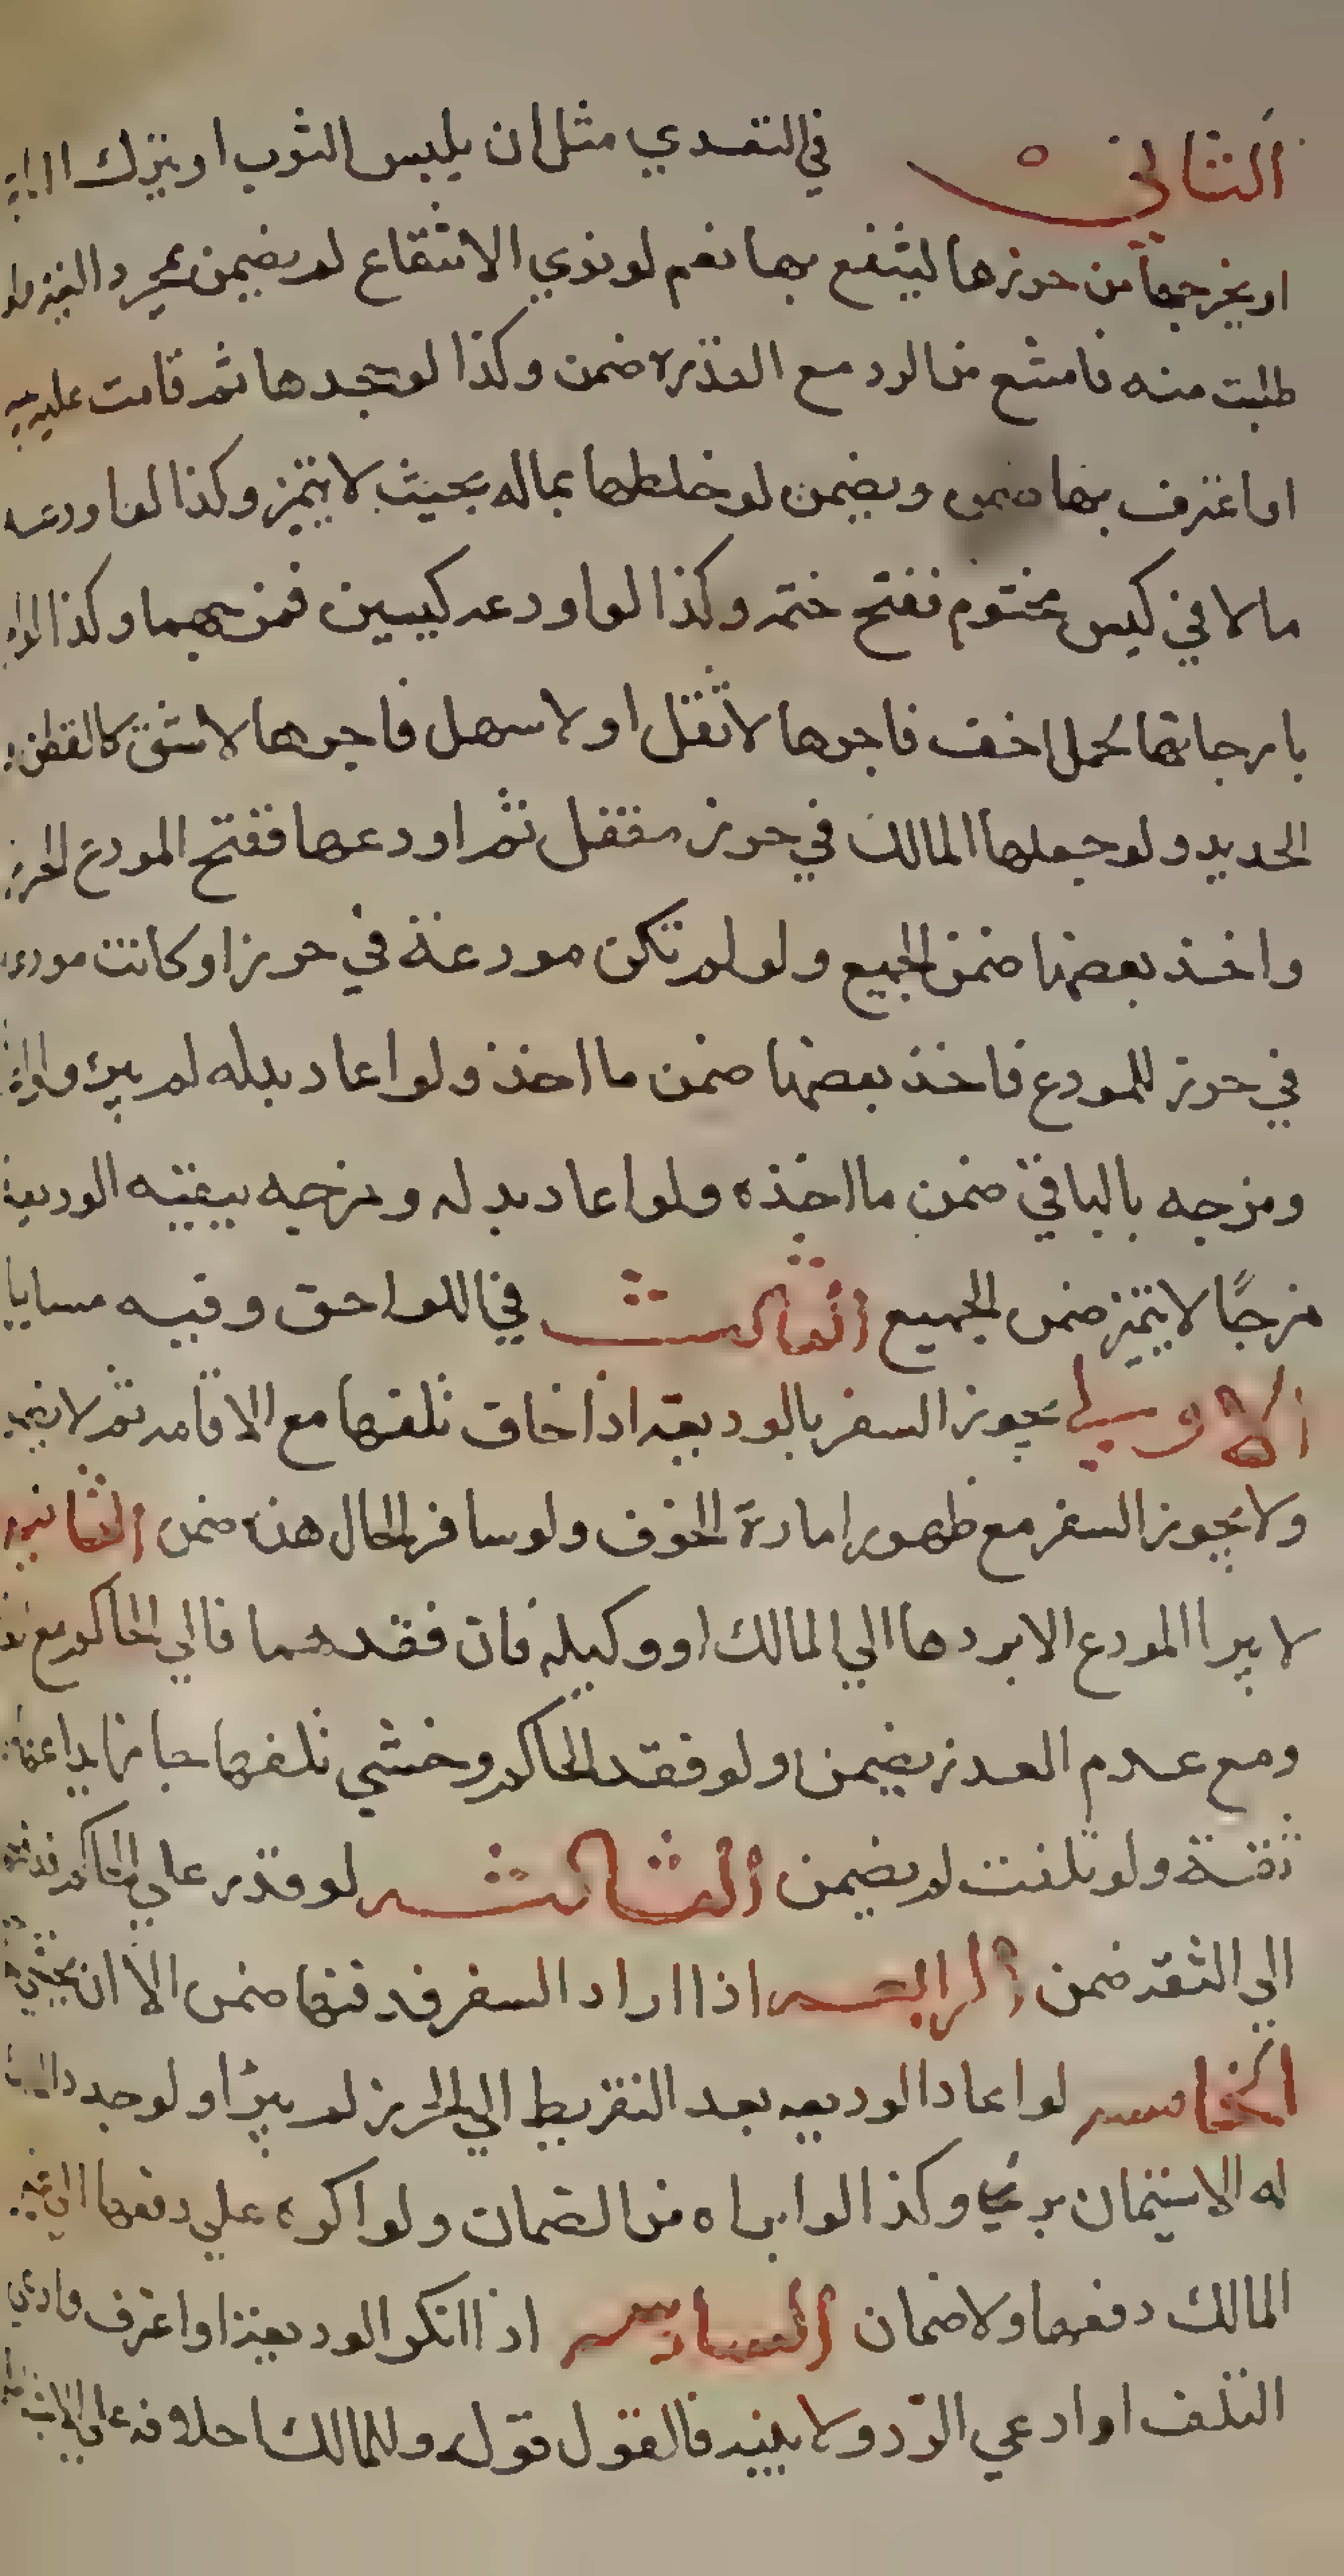 الثاني في التعدي مثل ان يلبس الثوب او يترك
او يخرجها من حرزها لينتفع بها نعم لو نوي الانتفاع لم يضمن بمجرد النية ولو
طلبت منه فامتنع من الرد مع القدره ضمن وكذا لو جحدها ثم قامت عليه
او اعترف بها ضمن ويضمن لو خلطها بماله بحيث لا يتميز وكذا لو اودعه
مالا في كيس مختوم ففتح ختمه وكذا لو اودعه كيسين فمزجهما وكذا
بارجانها لحمل اخف فاجرها لاثقل او لاسهل فاجرها لاشق كالقطن
الحديد ولو جعلها المالك في حرز مقفل ثم اودعها ففتح المودع الحرز
واخذ بعضها ضمن الجميع ولو لم تكن مودعة في حرز او كانت مودعه
في حرز للمودع فاخذ بعضها ضمن ما اخذ ولو اعاد بدله لم يبرء
ومزجه بالباقي ضمن ما اخذه ولو اعاد بدله ومزجه ببقيه الوديعة
مزجًا لا يتميز ضمن الجميع الثالث في اللواحق وفيه مسايل
الاولي يجوز السفر بالوديعة اذا خاف تلفها مع الاقامه ثم لا يضمن
ولا يجوز السفر مع ظهور امارة الخوف ولو سافر والحال هذه ضمن الثانيه
لا يبرا المودع الا بردها الي المالك او وكيله فان فقدهما فالي الحاكم مع
ومع عدم العذر يضمن ولو فقد الحاكم وخشي تلفها جاز ايداعها
ثقة ولو تلفت لم يضمن الثالثه لو قدر علي الحاكم فدفعها
الي الثقه ضمن الرابعه اذا اراد السفر فدفنها ضمن الا ان يخشي
الخامسه لو اعاد الوديعه بعد التفريط الي الحرز لم يبرأ ولو جدد
له الاستيمان برئ وكذا لو ابراه من الضمان ولو اكره علي دفعها الي غير
المالك دفعها ولا ضمان السادسه اذا انكر الوديعة او اعترف وادعي
التلف او ادعي الرد ولا بينه فالقول قوله وللمالك احلافه علي